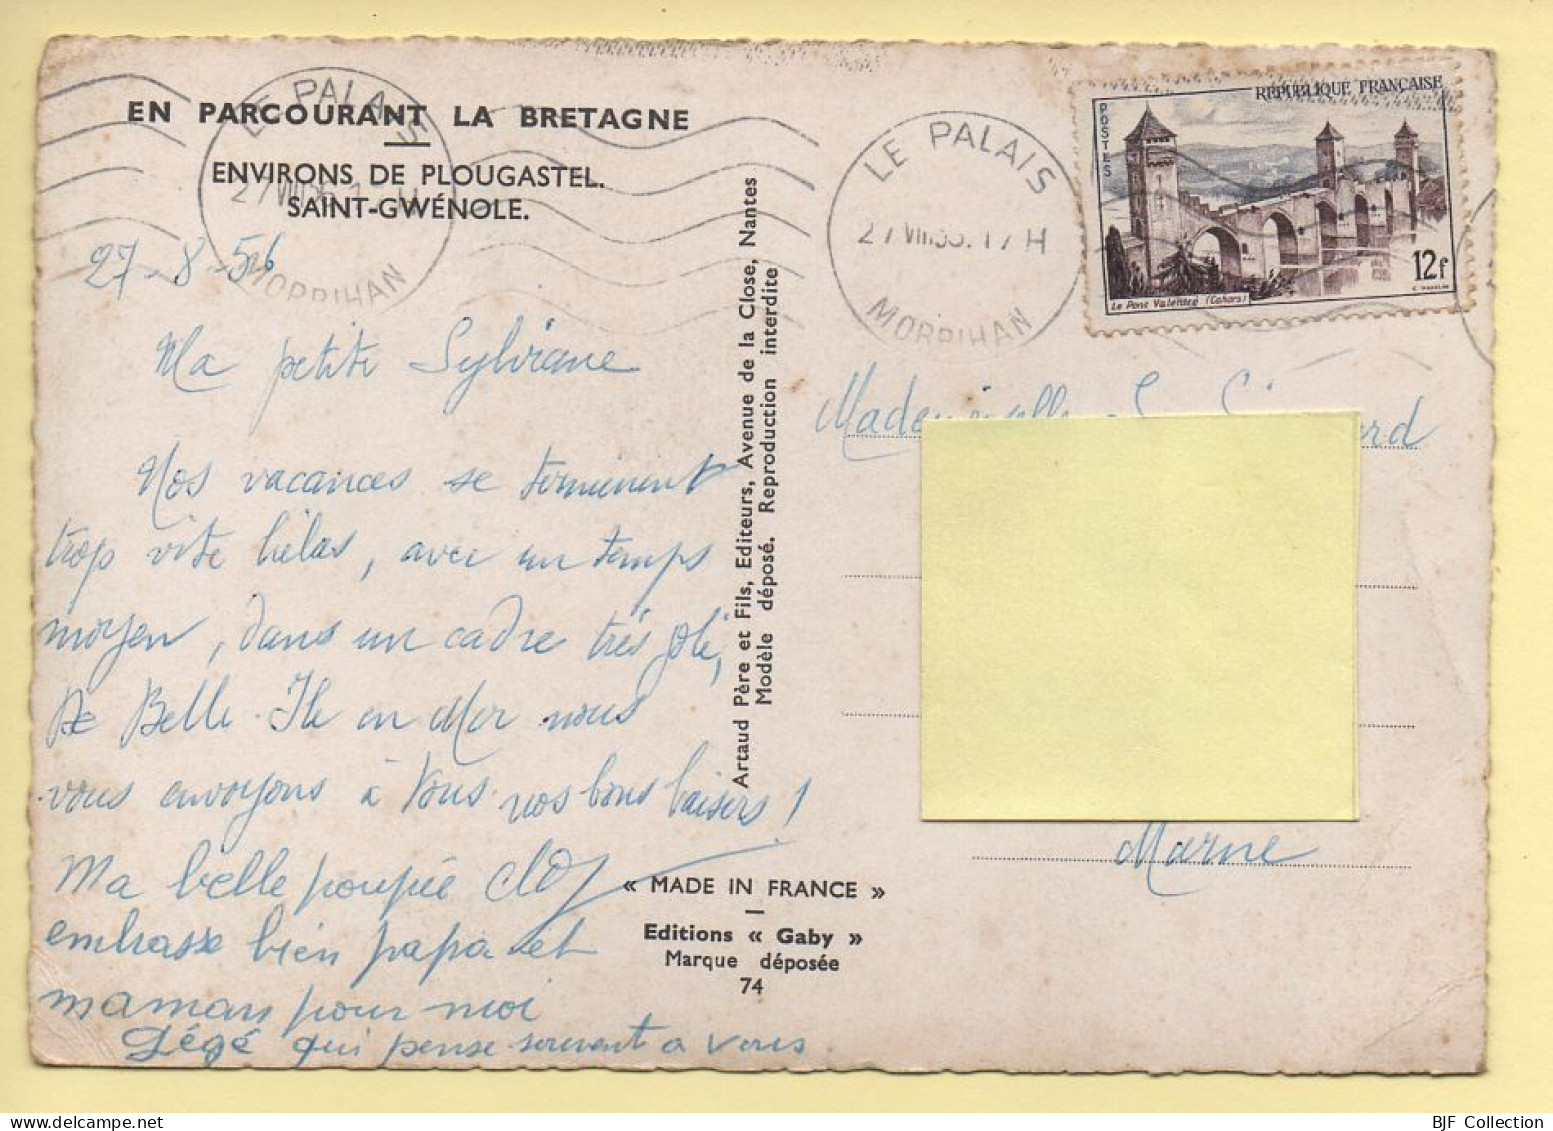 EN PARCOURANT LA BRETAGNE
ENVIRONS DE PLOUGASTEL.
SAINT-GWÉNOLE.
LE PALAIS
27 VIII 56
MORBIHAN
27-8-56
Ma petite Sylviane
Nos vacances se terminent
trop vite hélas, avec un temps
moyen, dans un cadre très joli,
De Belle-Ile en Mer nous
vous envoyons à tous nos bons baisers !
Ma belle poupée
embrasse bien papa et
maman pour moi
Gégé qui pense souvent a vous
Artaud Père et Fils, Editeurs, Avenue de la Close, Nantes
Modèle déposé. Reproduction interdite
« MADE IN FRANCE »
Editions « Gaby »
Marque déposée
74
LE PALAIS
27 VIII 56. 17H
MORBIHAN
RÉPUBLIQUE FRANÇAISE
POSTES
12f
Le Pont Valentré (Cahors)
Mademoiselle
Marne
BJF Collection